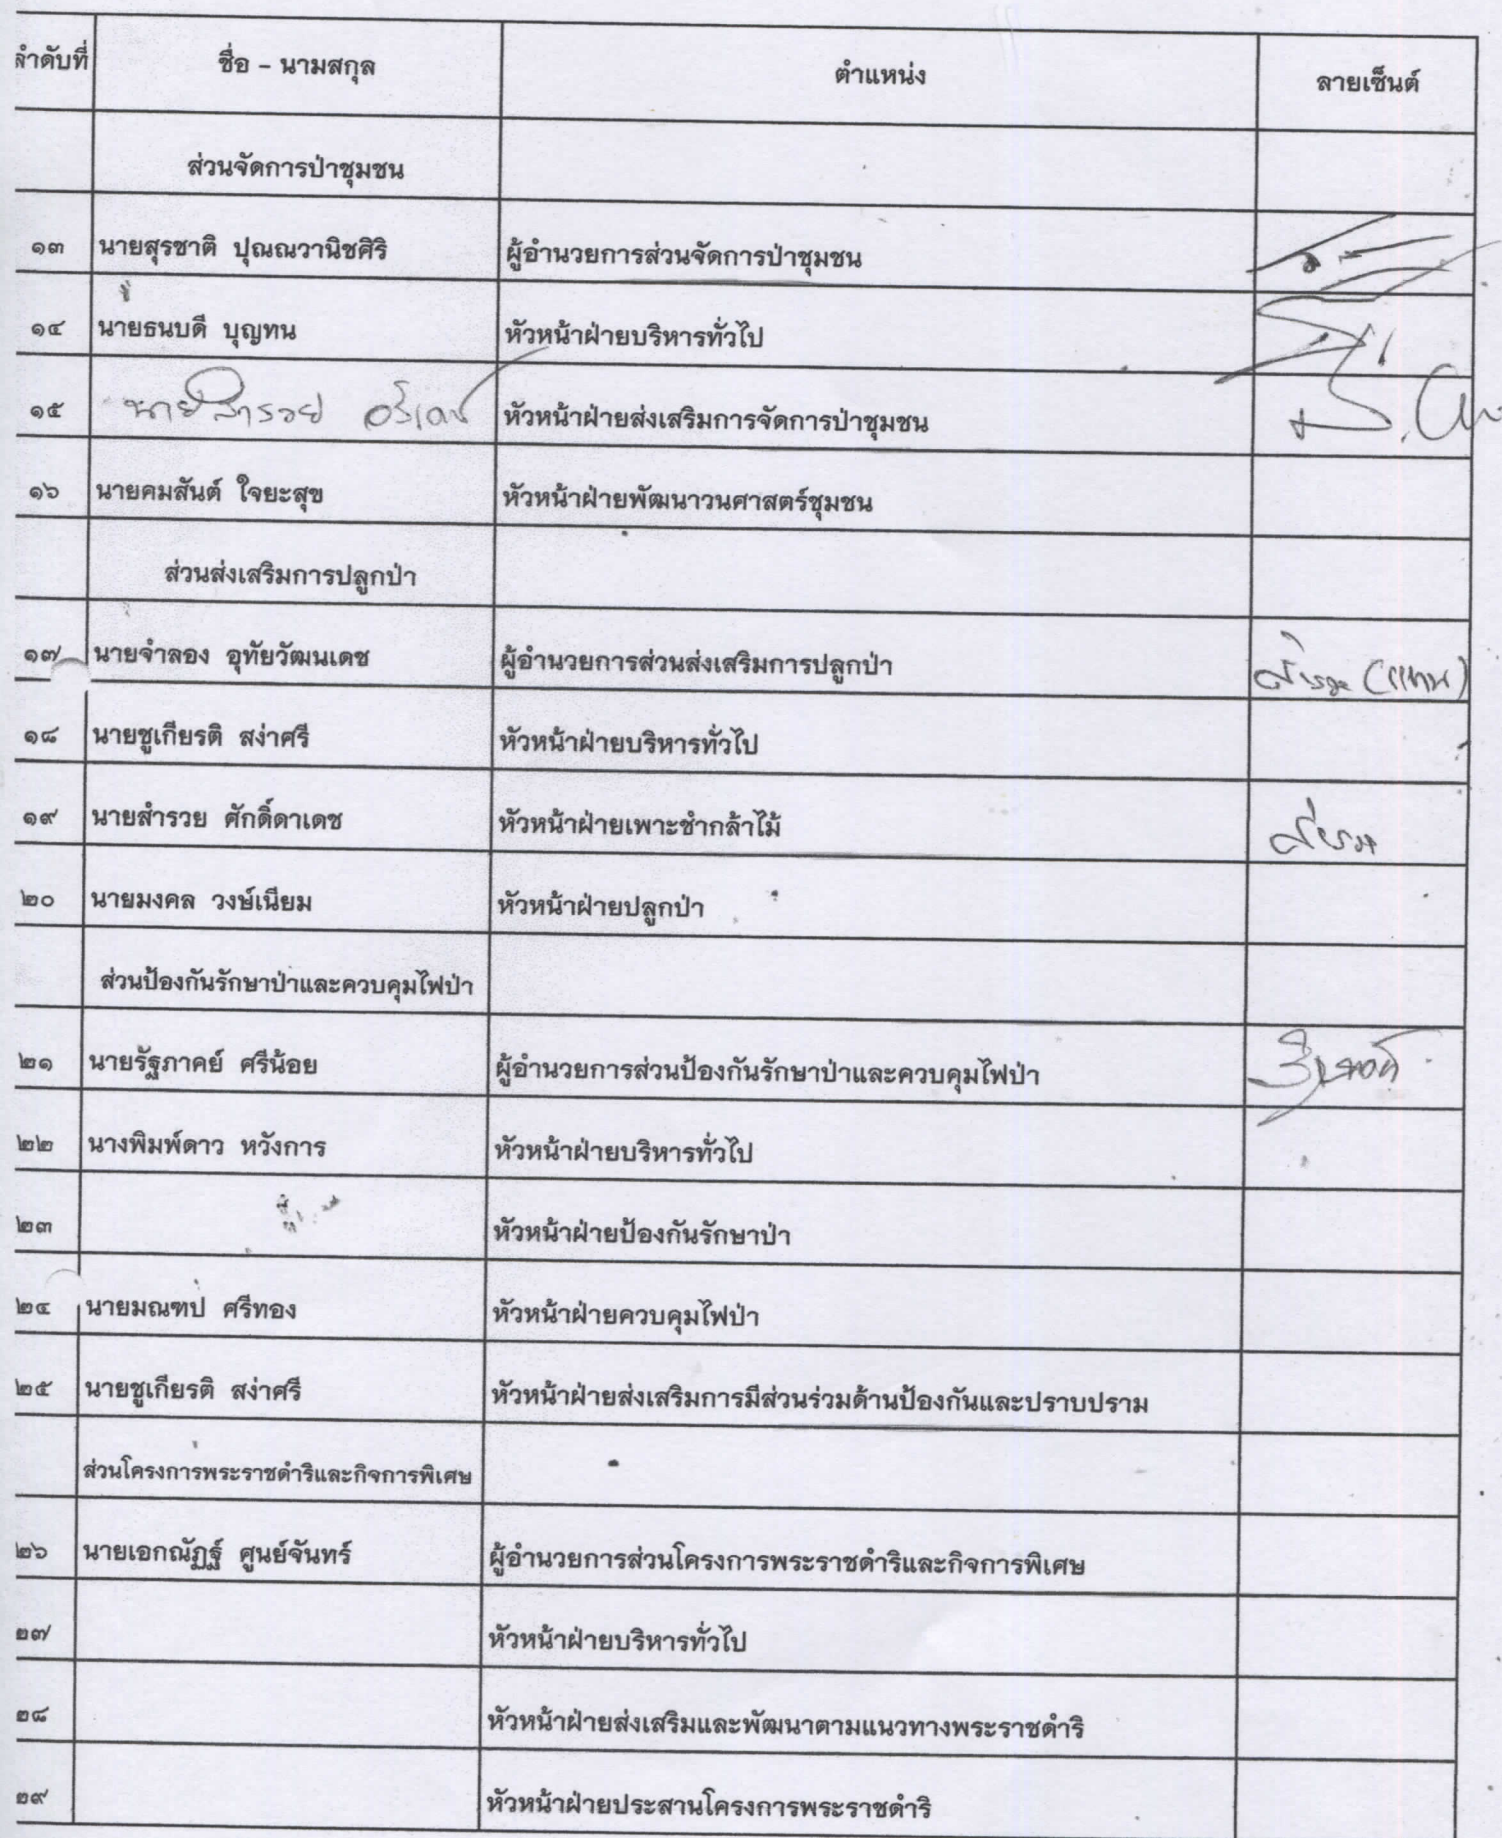 ลำดับที่ ชื่อ - นามสกุล ตำแหน่ง ลายเซ็นต์
ส่วนจัดการป่าชุมชน
๑๓ นายสุรชาติ ปุณณวานิชศิริ ผู้อำนวยการส่วนจัดการป่าชุมชน
๑๔ นายธนบดี บุญทน หัวหน้าฝ่ายบริหารทั่วไป
๑๕ นายสำรวย หัวหน้าฝ่ายส่งเสริมการจัดการป่าชุมชน
๑๖ นายคมสันต์ ใจยะสุข หัวหน้าฝ่ายพัฒนาวนศาสตร์ชุมชน
ส่วนส่งเสริมการปลูกป่า
๑๗ นายจำลอง อุทัยวัฒนเดช ผู้อำนวยการส่วนส่งเสริมการปลูกป่า (แทน)
๑๘ นายชูเกียรติ สง่าศรี หัวหน้าฝ่ายบริหารทั่วไป
๑๙ นายสำรวย ศักดิ์ดาเดช หัวหน้าฝ่ายเพาะชำกล้าไม้
๒๐ นายมงคล วงษ์เนียม หัวหน้าฝ่ายปลูกป่า
ส่วนป้องกันรักษาป่าและควบคุมไฟป่า
๒๑ นายรัฐภาคย์ ศรีน้อย ผู้อำนวยการส่วนป้องกันรักษาป่าและควบคุมไฟป่า
๒๒ นางพิมพ์ดาว หวังการ หัวหน้าฝ่ายบริหารทั่วไป
๒๓ หัวหน้าฝ่ายป้องกันรักษาป่า
๒๔ นายมณฑป ศรีทอง หัวหน้าฝ่ายควบคุมไฟป่า
๒๕ นายชูเกียรติ สง่าศรี หัวหน้าฝ่ายส่งเสริมการมีส่วนร่วมด้านป้องกันและปราบปราม
ส่วนโครงการพระราชดำริและกิจการพิเศษ
๒๖ นายเอกณัฏฐ์ ศูนย์จันทร์ ผู้อำนวยการส่วนโครงการพระราชดำริและกิจการพิเศษ
๒๗ หัวหน้าฝ่ายบริหารทั่วไป
๒๘ หัวหน้าฝ่ายส่งเสริมและพัฒนาตามแนวทางพระราชดำริ
๒๙ หัวหน้าฝ่ายประสานโครงการพระราชดำริ